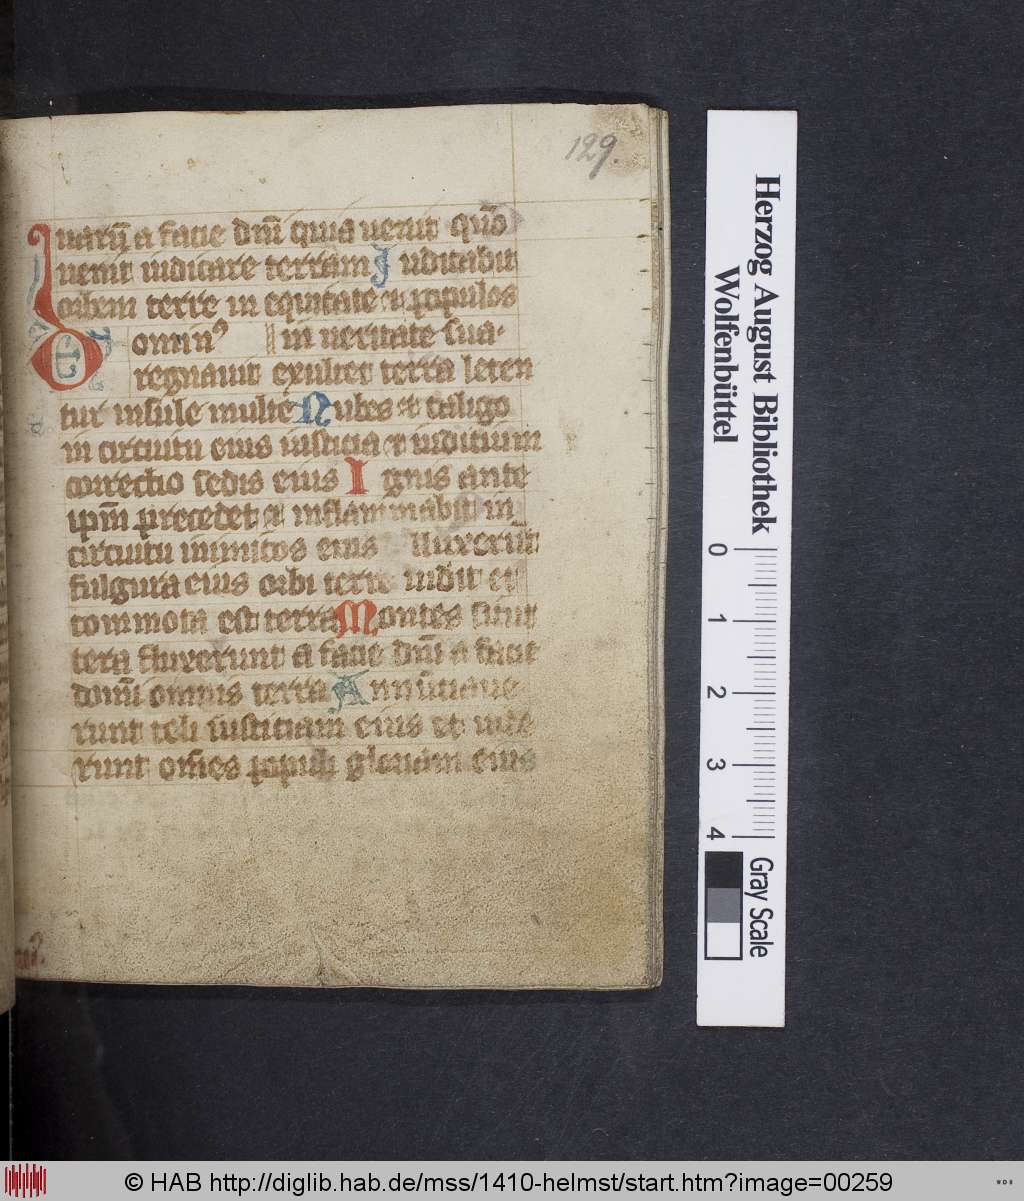 129
uarū a facie dn̄i quia uenit qm̄
uenit iudicare terram Iudicabit
orbem terre in equitate et populos
in ueritate sua.
Dominꝰ
regnauit exultet terra leten
tur insule multe Nubes et caligo
in circuitu eius iusticia et iudicium
correctio sedis eius Ignis ante
ipm̄ precedet et inflammabit in
circuitu inimicos eius Illuxerūt
fulgura eius orbi terre uidit et
commota est terra Montes sicut
cera fluxerunt a facie dn̄i a facie
domī omnis terra Annūciaue
runt celi iusticiam eius et uide
runt om̄es populi gloriam eius
Herzog August Bibliothek
Wolfenbüttel
0 1 2 3 4
Gray Scale
© HAB http://diglib.hab.de/mss/1410-helmst/start.htm?image=00259